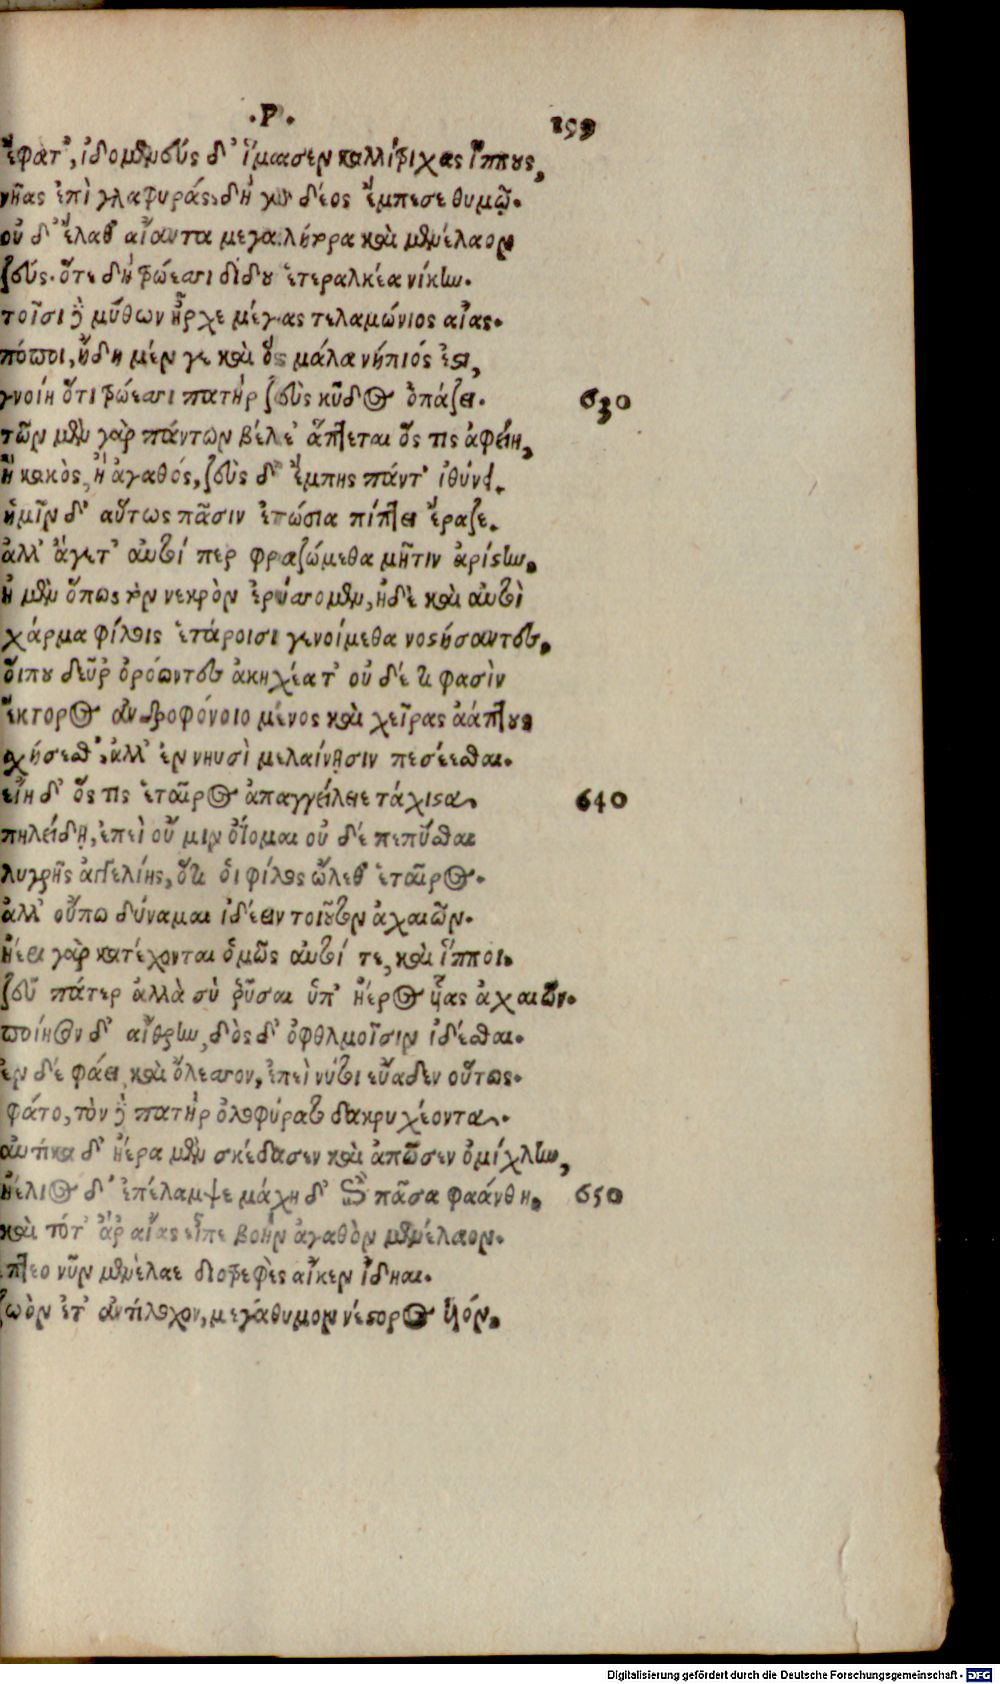 ·Ρ·
199
ἔφατ’, ἰδομενεὺς δ’ ἵμασεν καλλίτριχας ἵππους,
νῆας ἐπὶ γλαφυράς. δὴ γὰρ δέος ἔμπεσε θυμῷ.
οὐ δ’ ἔλαθ’ αἴαντα μεγαλήτορα καὶ μενέλαον
ζεύς. ὅτε δὴ τρώεσσι δίδου ἑτεραλκέα νίκην.
τοῖσι δὲ μύθων ἦρχε μέγας τελαμώνιος αἴας.
πόποι, ἤδη μέν γε καὶ ὃς μάλα νήπιός ἐστι,
γνοίη ὅτι τρώεσσι πατὴρ ζεὺς κῦδος ὀπάζει. 630
τῶν μὲν γὰρ πάντων βέλε’ ἅπτεται ὅς τις ἀφείη,
ἢ κακὸς, ἢ ἀγαθός, ζεὺς δ’ ἔμπης πάντ’ ἰθύνει.
ἡμῖν δ’ αὔτως πᾶσιν ἐτώσια πίπτει ἔραζε.
ἀλλ’ ἄγετ’ αὐτοί περ φραζώμεθα μῆτιν ἀρίστην.
ἠ μὲν ὅπως τὸν νεκρὸν ἐρύσσομεν, ἠδὲ καὶ αὐτοὶ
χάρμα φίλοις ἑτάροισι γενοίμεθα νοστήσαντες.
οἵπου δεῦρ’ ὁρόωντες ἀκηχέατ’ οὐ δέ τι φασὶν
ἕκτορος ἀνδροφόνοιο μένος καὶ χεῖρας ἀάπτους
σχήσεσθ’, ἀλλ’ ἐν νηυσὶ μελαίνῃσιν πεσέεσθαι.
εἴη δ’ ὅς τις ἑταῖρος ἀπαγγείλειε τάχιστα 640
πηλείδῃ, ἐπεὶ οὔ μιν ὀΐομαι οὐ δέ πεπύσθαι
λυγρῆς ἀγγελίης, ὅτι οἱ φίλος ὤλεθ’ ἑταῖρος.
ἀλλ’ οὔπω δύναμαι ἰδέειν τοιοῦτον ἀχαιῶν.
ἠέει γὰρ κατέχονται ὁμῶς αὐτοί τε, καὶ ἵπποι.
ζεῦ πάτερ ἀλλὰ σὺ ῥῦσαι ὑπ’ ἠέρος υἷας ἀχαιῶν.
ποίησον δ’ αἴθρην, δὸς δ’ ὀφθλμοῖσιν ἰδέσθαι.
ἐν δέ φάει καὶ ὄλεσσον, ἐπεὶ νύτοι εὔαδεν οὕτως.
φάτο, τὸν δὲ πατὴρ ὀλοφύρατο δακρυχέοντα.
αὐτίκα δ’ ἠέρα μὲν σκέδασεν καὶ ἀπῶσεν ὀμίχλην,
ἠέλιος δ’ ἐπέλαμψε μάχη δ’ ἐπὶ πᾶσα φαάνθη. 650
καὶ τότ’ ἄρ αἴας εἶπε βοὴν ἀγαθὸν μενέλαον.
πτεο νῦν μενέλαε διοτρεφὲς αἴκεν ἴδηαι.
ζωὸν ἔτ’ ἀντίλοχον, μεγάθυμον νέστορος υἱόν.
Digitalisierung gefördert durch die Deutsche Forschungsgemeinschaft - DFG